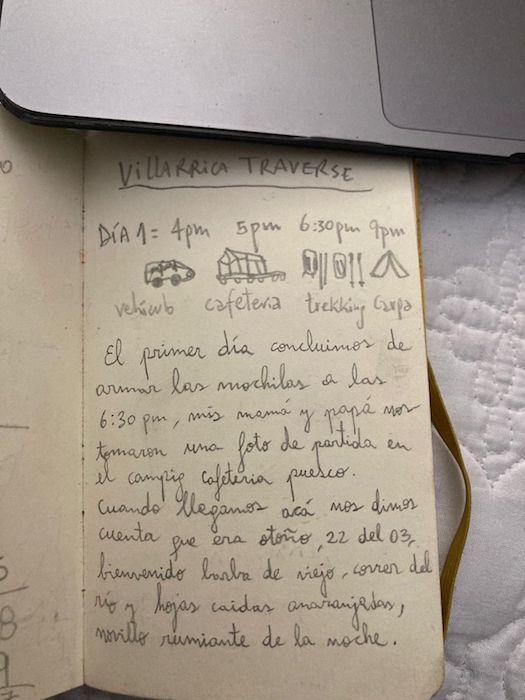 VILLARRICA TRAVERSE
DÍA 1 = 4pm 5pm 6:30pm 9pm
vehículo cafetería trekking Carpa
El primer día concluimos de
armar las mochilas a las
6:30 pm, mis mamá y papá nos
tomaron una foto de partida en
el campig cafeteria puesco.
Cuando llegamos acá nos dimos
cuenta que era otoño, 22 del 03,
bienvenido barba de viejo, correr del
río y hojas caidas anaranjadas,
novillo rumiante de la noche.